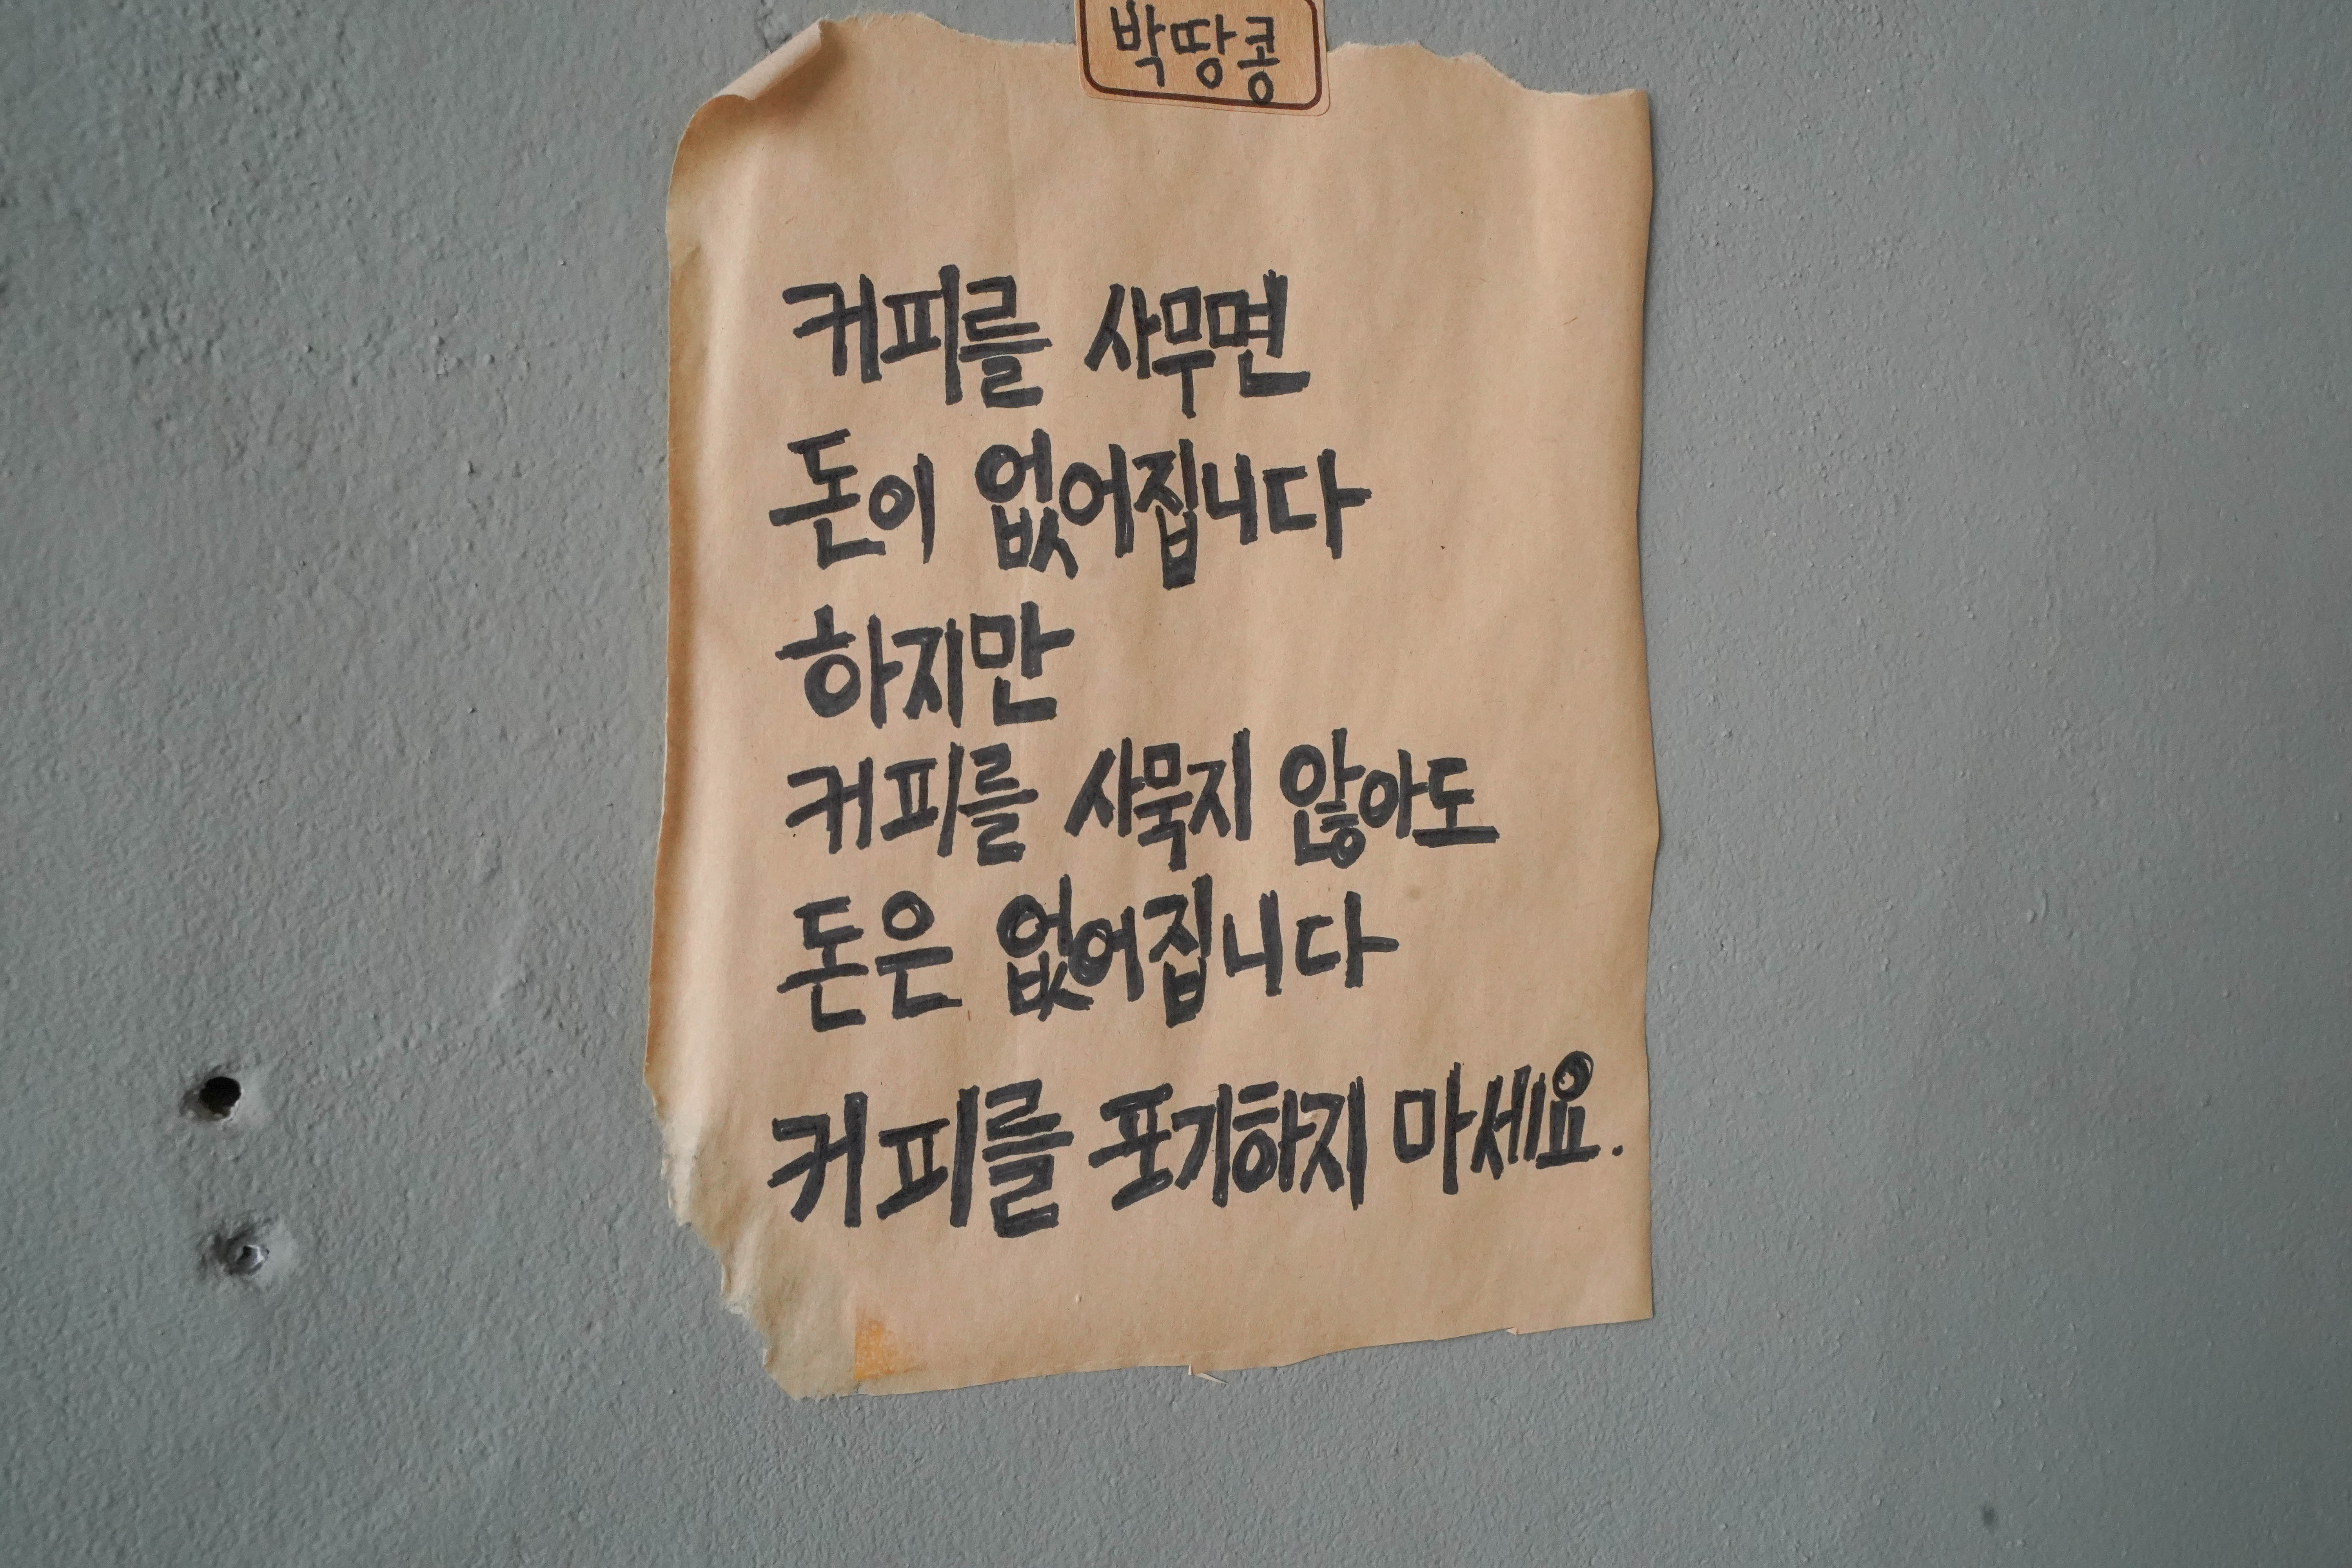 박땅콩
커피를 사무면
돈이 없어집니다
하지만
커피를 사묵지 않아도
돈은 없어집니다
커피를 포기하지 마세요.